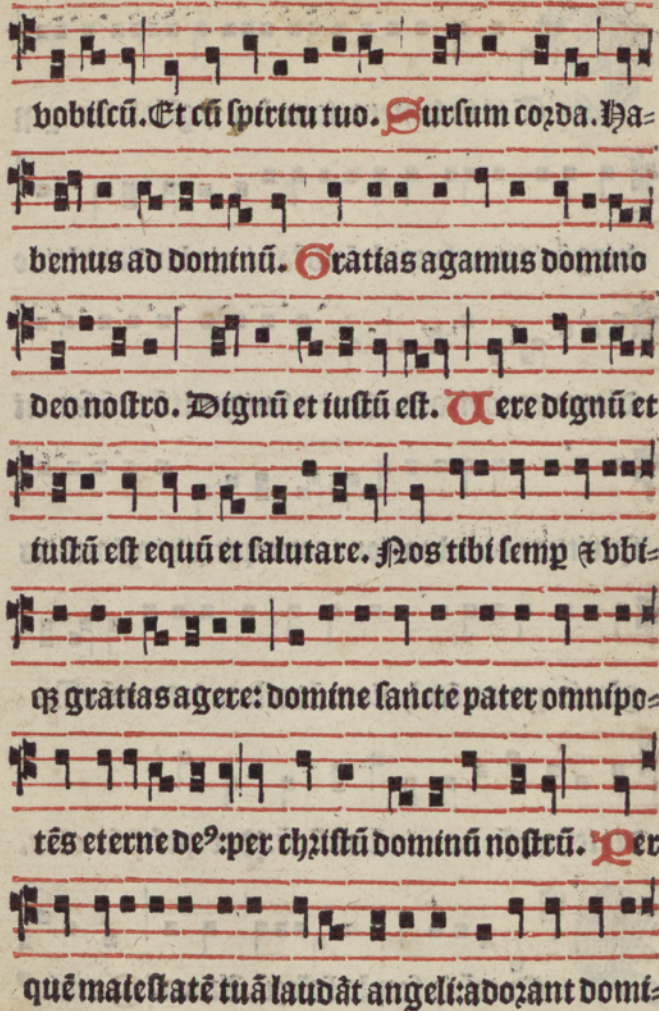 vobiſcū. Et cū ſpiritu tuo. Surſum coꝛda. Ha⸗
bemus ad dominū. Gratias agamus domino
deo noſtro. Dignū et iuſtū eſt. Uere dignū et
iuſtū eſt equū et ſalutare. Nos tibi ſemꝑ ⁊ vbi⸗
qꝫ gratias agere: domine ſancte pater omnipo⸗
tēs eterne deꝰ: per chꝛiſtū dominū noſtrū. Per
quē maieſtatē tuā laudāt angeli: adoꝛant domi⸗